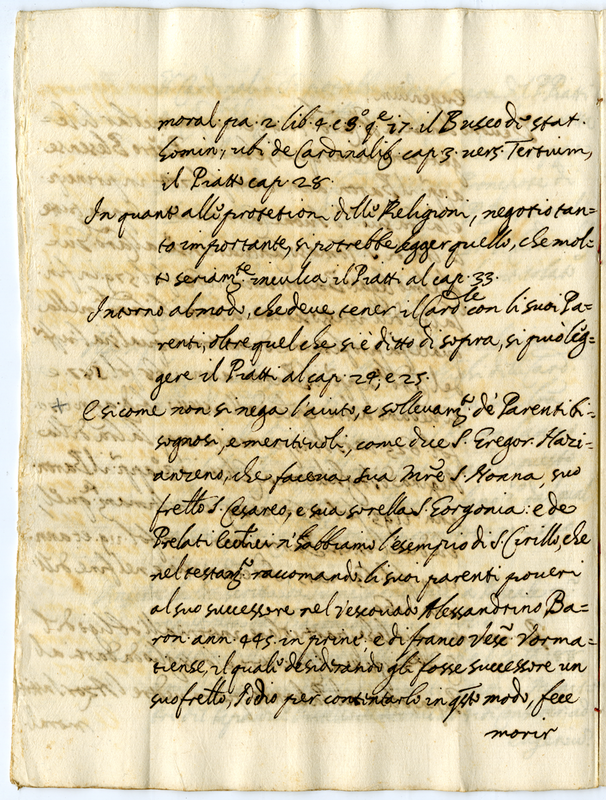 moral. pa. 2. lib. 4. c 3.° q.e 17. il Busco de stat.
homin; ubi de Cardinalib. cap 3. vers. Tertium,
il Piatto cap. 28.
In quanto alla protetion della Religioni, negotio tan=
to importante, si potrebbe legger quello, che mol=
to seriam.te inculca il Piatti al cap. 33.
Intorno al modo, che deve tener il Card.le con li suoi Pa=
renti, oltre quel che si è ditto di sopra, si può leg=
gere il Piatti al cap. 24, e 25.
+ E si come non si nega l'aiuto, e sollevam.to de' Parenti bi=
sognosi, e meritevoli, come dice S. Gregor. Nazi=
anzeno, che faceva sua Mre S. Nonna, suo
frello S. Cesareo, e sua sorella S. Gorgonia: e de
Prelati n'habbiamo l'esempio di S. Cirillo, che
nel testam.to raccomandò li suoi parenti poveri
al suo successore nel Vescovado Alessandrino Ba=
ron. ann. 445. in princ. e di franco Vesc. Vorma=
tiense, il quale desiderando gli fosse successore un
suo frello, Iddio per contentarlo in qsto modo, fece
morir